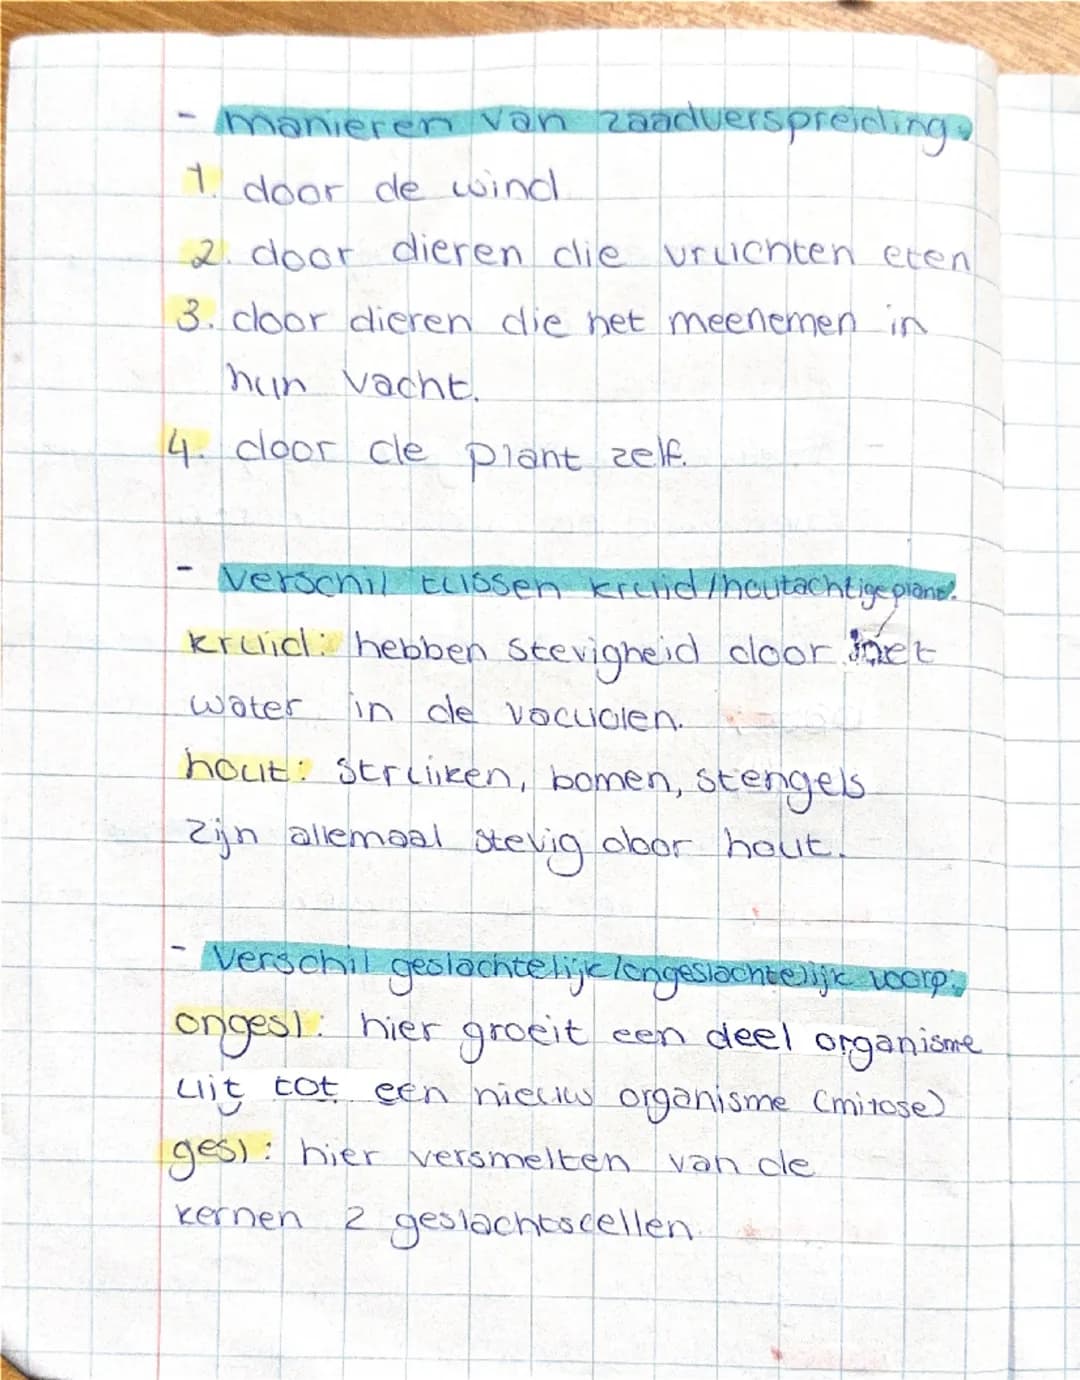 - manieren van zaadverspreiding.
1. door de wind
2. door dieren die vruchten eten
3. door dieren die het meenemen in
hun vacht.
4. door de plant zelf.
- verschil tussen kruid/houtachtige plant.
kruid: hebben stevigheid door het
water in de vocuolen.
hout: struiken, bomen, stengels
zijn allemaal stevig door hout.
- verschil geslachtelijk/ongeslachtelijk voorp.
ongesl: hier groeit een deel organisme
uit tot een nieuw organisme (mitose)
gesl: hier versmelten van de
kernen 2 geslachtscellen.